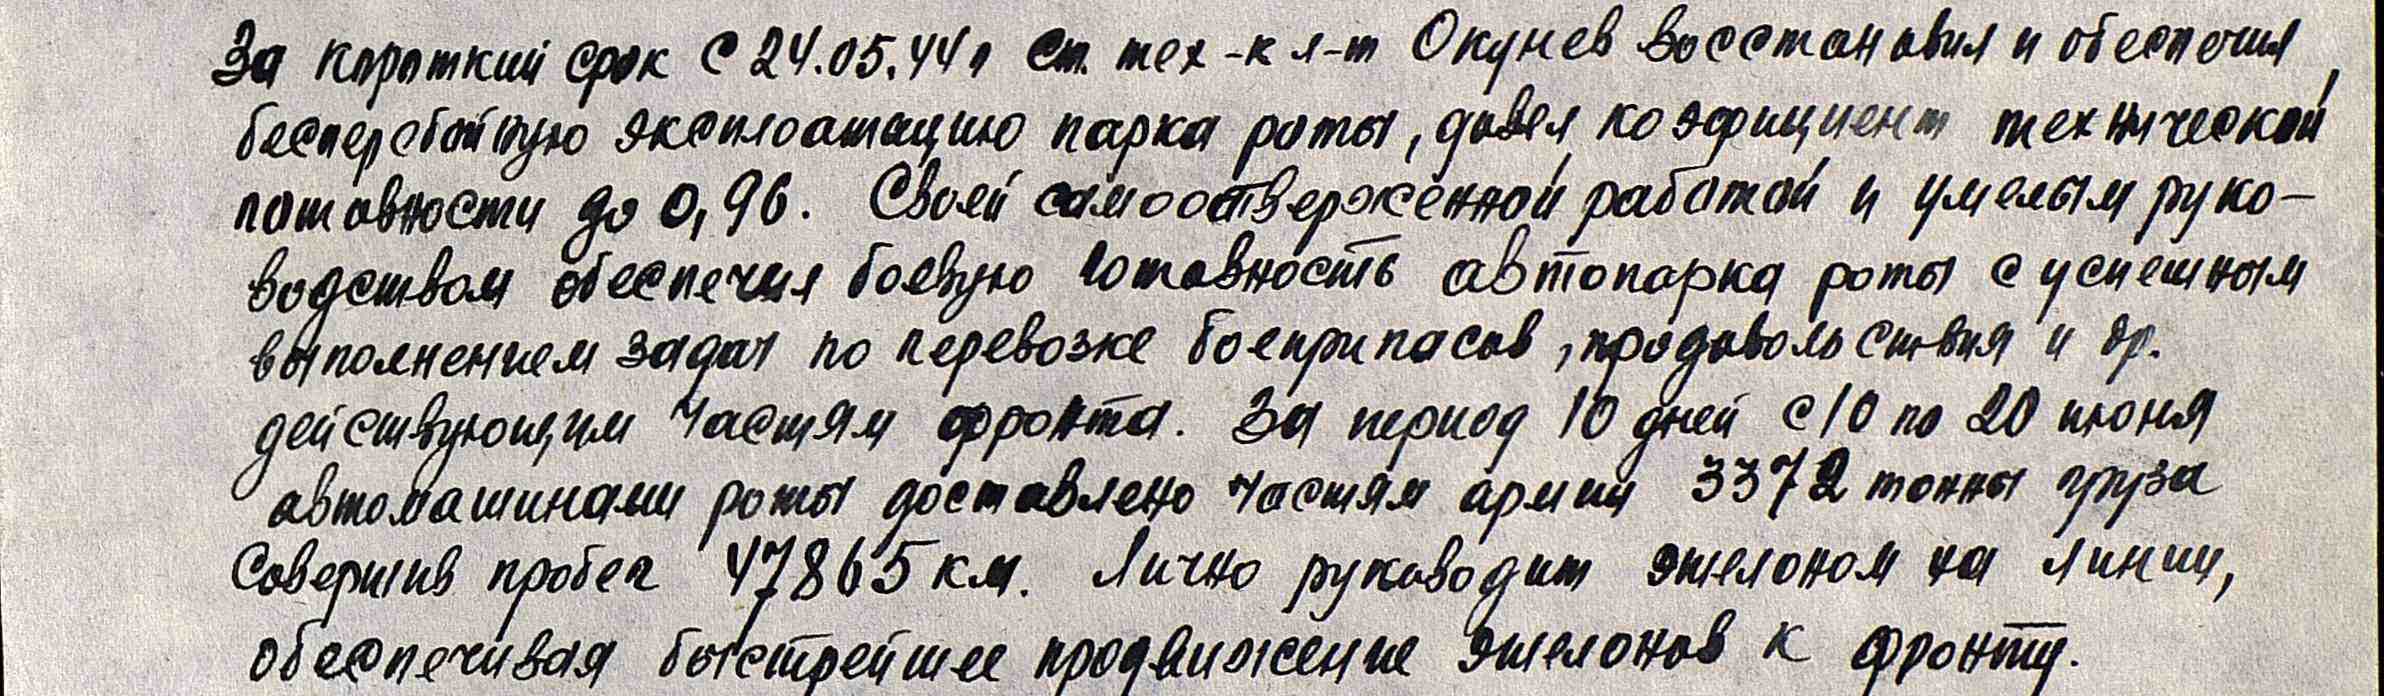 За короткий срок с 24.05.44г ст. тех-к л-т Окунев восстановил и обеспечил,
бесперебойную эксплоатацию парка роты, довел коэфициент технической
готовности до 0,96. Своей самоотверженной работой и умелым руко-
водством обеспечил боевую готовность автопарка роты с успешным
выполнением задач по перевозке боеприпасов, продовольствия и др.
действующим частям фронта. За период 10 дней с 10 по 20 июня
автомашинами роты доставлено частям армии 3372 тонны груза
совершив пробег 47865 км. Лично руководит эшелоном на линии,
обеспечивая быстрейшее продвижение эшелонов к фронту.